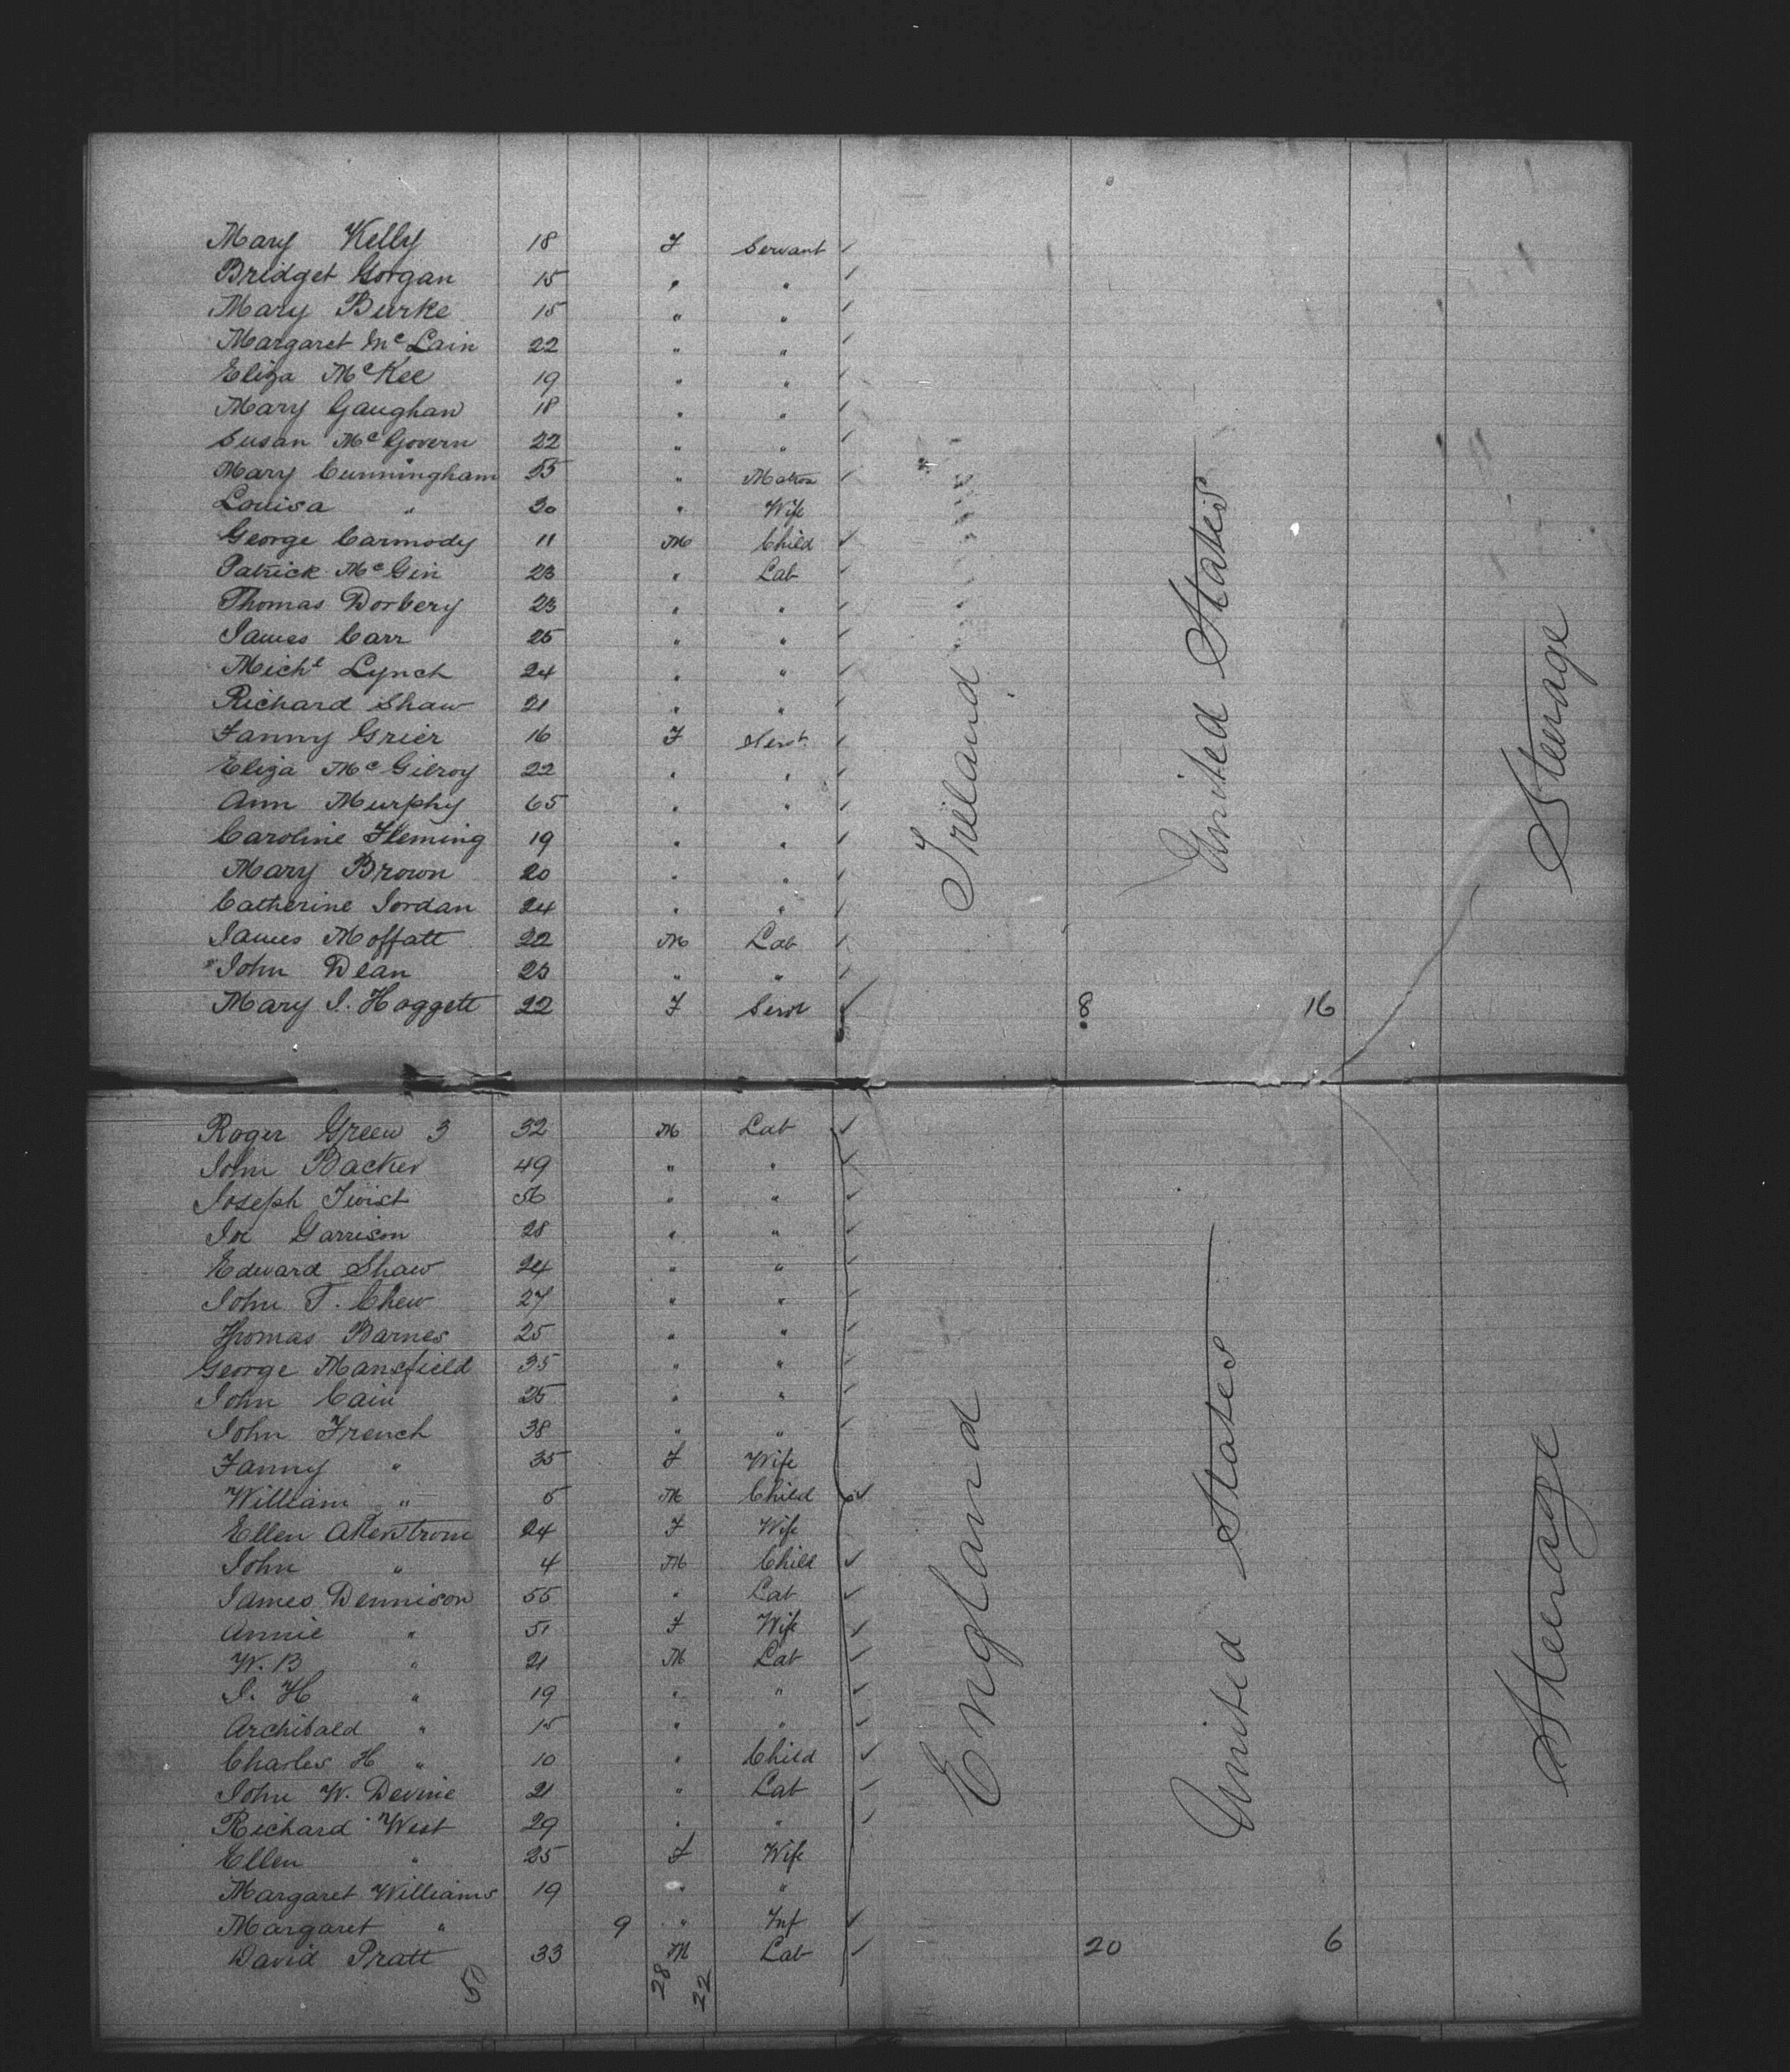 Mary Kelly 18 F Servant ✓
Bridget Gorgan 15 " " ✓
Mary Burke 15 " " ✓
Margaret McLain 22 " " ✓
Eliza McKee 19 " " ✓
Mary Gaughan 18 " " ✓
Susan McGovern 22 " " ✓
Mary Cunningham 55 " Matron ✓
Louisa " 30 " Wife
George Carmody 11 M Child ✓
Patrick McGin 23 " Lab ✓
Thomas Dorbery 23 " " ✓
James Carr 25 " " ✓
Michl Lynch 24 " " ✓
Richard Shaw 21 " " ✓
Fanny Grier 16 F Servt ✓
Eliza McGilroy 22 " " ✓
Ann Murphy 65 " " ✓
Caroline Fleming 19 " " ✓
Mary Brown 20 " " ✓
Catherine Jordan 24 " " ✓
James Moffatt 22 M Lab ✓
John Dean 23 " " ✓
Mary J. Hoggett 22 F Servt ✓ 8 16
Ireland
United States
Steerage
Roger Green 3 32 M Lab ✓
John Backer 49 " " ✓
Joseph Twist 56 " " ✓
Joe Garrison 28 " " ✓
Edward Shaw 24 " " ✓
John T. Chew 27 " " ✓
Thomas Barnes 25 " " ✓
George Mansfield 35 " " ✓
John Cain 25 " " ✓
John French 38 " " ✓
Fanny " 35 F Wife
William " 5 M Child ✓
Ellen Akerstrom 24 F Wife
John " 4 M Child ✓
James Dennison 55 " Lab ✓
Annie " 51 F Wife ✓
W. B " 21 M Lab ✓
J. H " 19 " " ✓
Archibald " 15 " " ✓
Charles H " 10 " Child ✓
John W. Devine 21 " Lab ✓
Richard West 29 " " ✓
Ellen " 25 F Wife
Margaret Williams 19 " "
Margaret " 9 " Inf ✓
David Pratt 33 M Lab ✓ 20 6
50 28 22
England
United States
Steerage